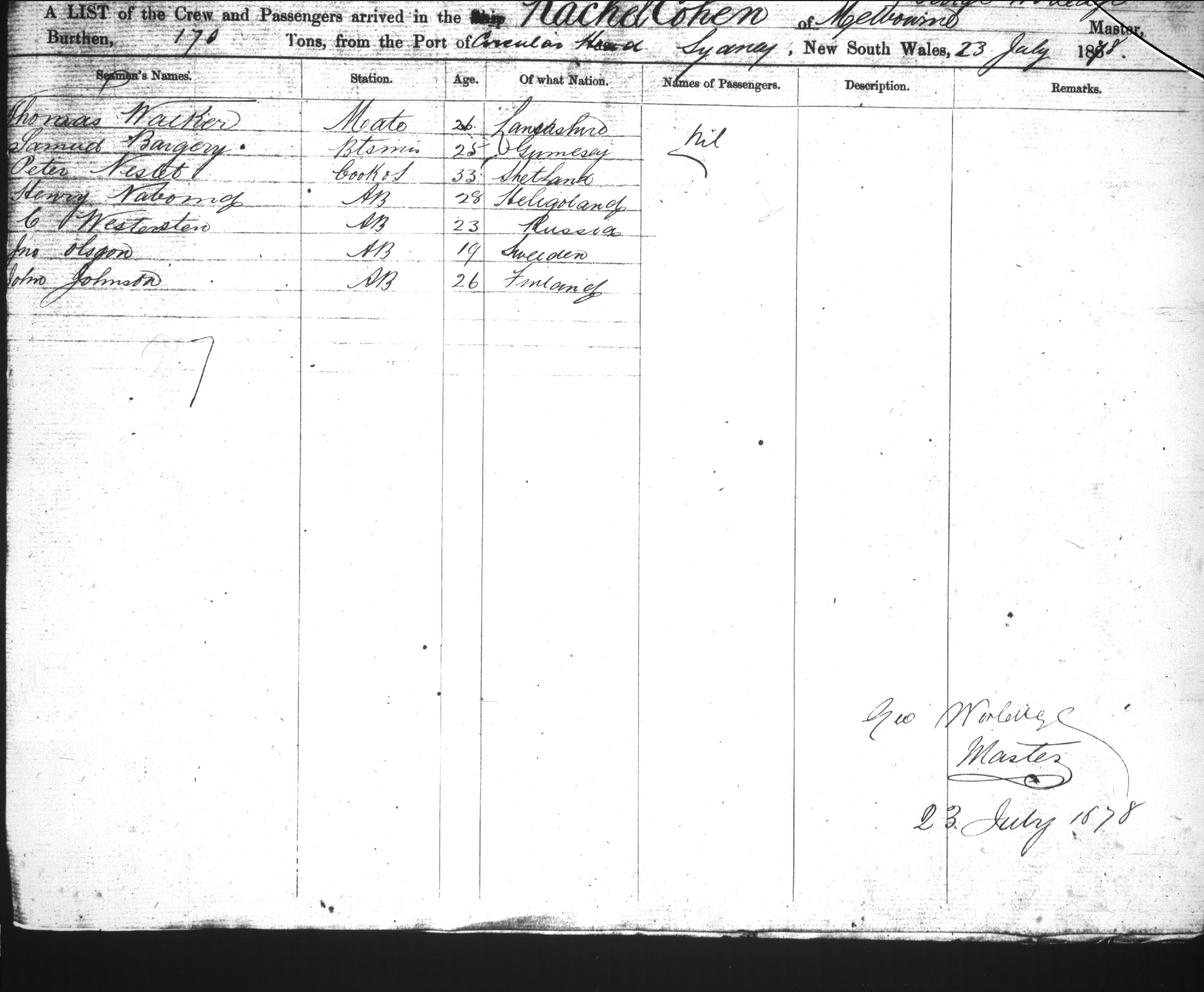 A LIST of the Crew and Passengers arrived in the Ship Rachel Cohen of Melbourne Master,
Burthen, 170 Tons, from the Port of Circular Head Sydney, New South Wales, 23 July 1878.
Seamen's Names. Station. Age. Of what Nation. Names of Passengers. Description. Remarks.
Thomas Walker Mate 26 Lancashire Nil
Samuel Bargery Btsmn 25 Guernsey
Peter Nisbet Cook &S 33 Shetland
Henry 28 AB Heligoland
C Westersten AB 23 Russia
Jno Olsson AB 19 Sweden
John Johnson AB 26 Finland
7
Geo
Master
23 July 1878